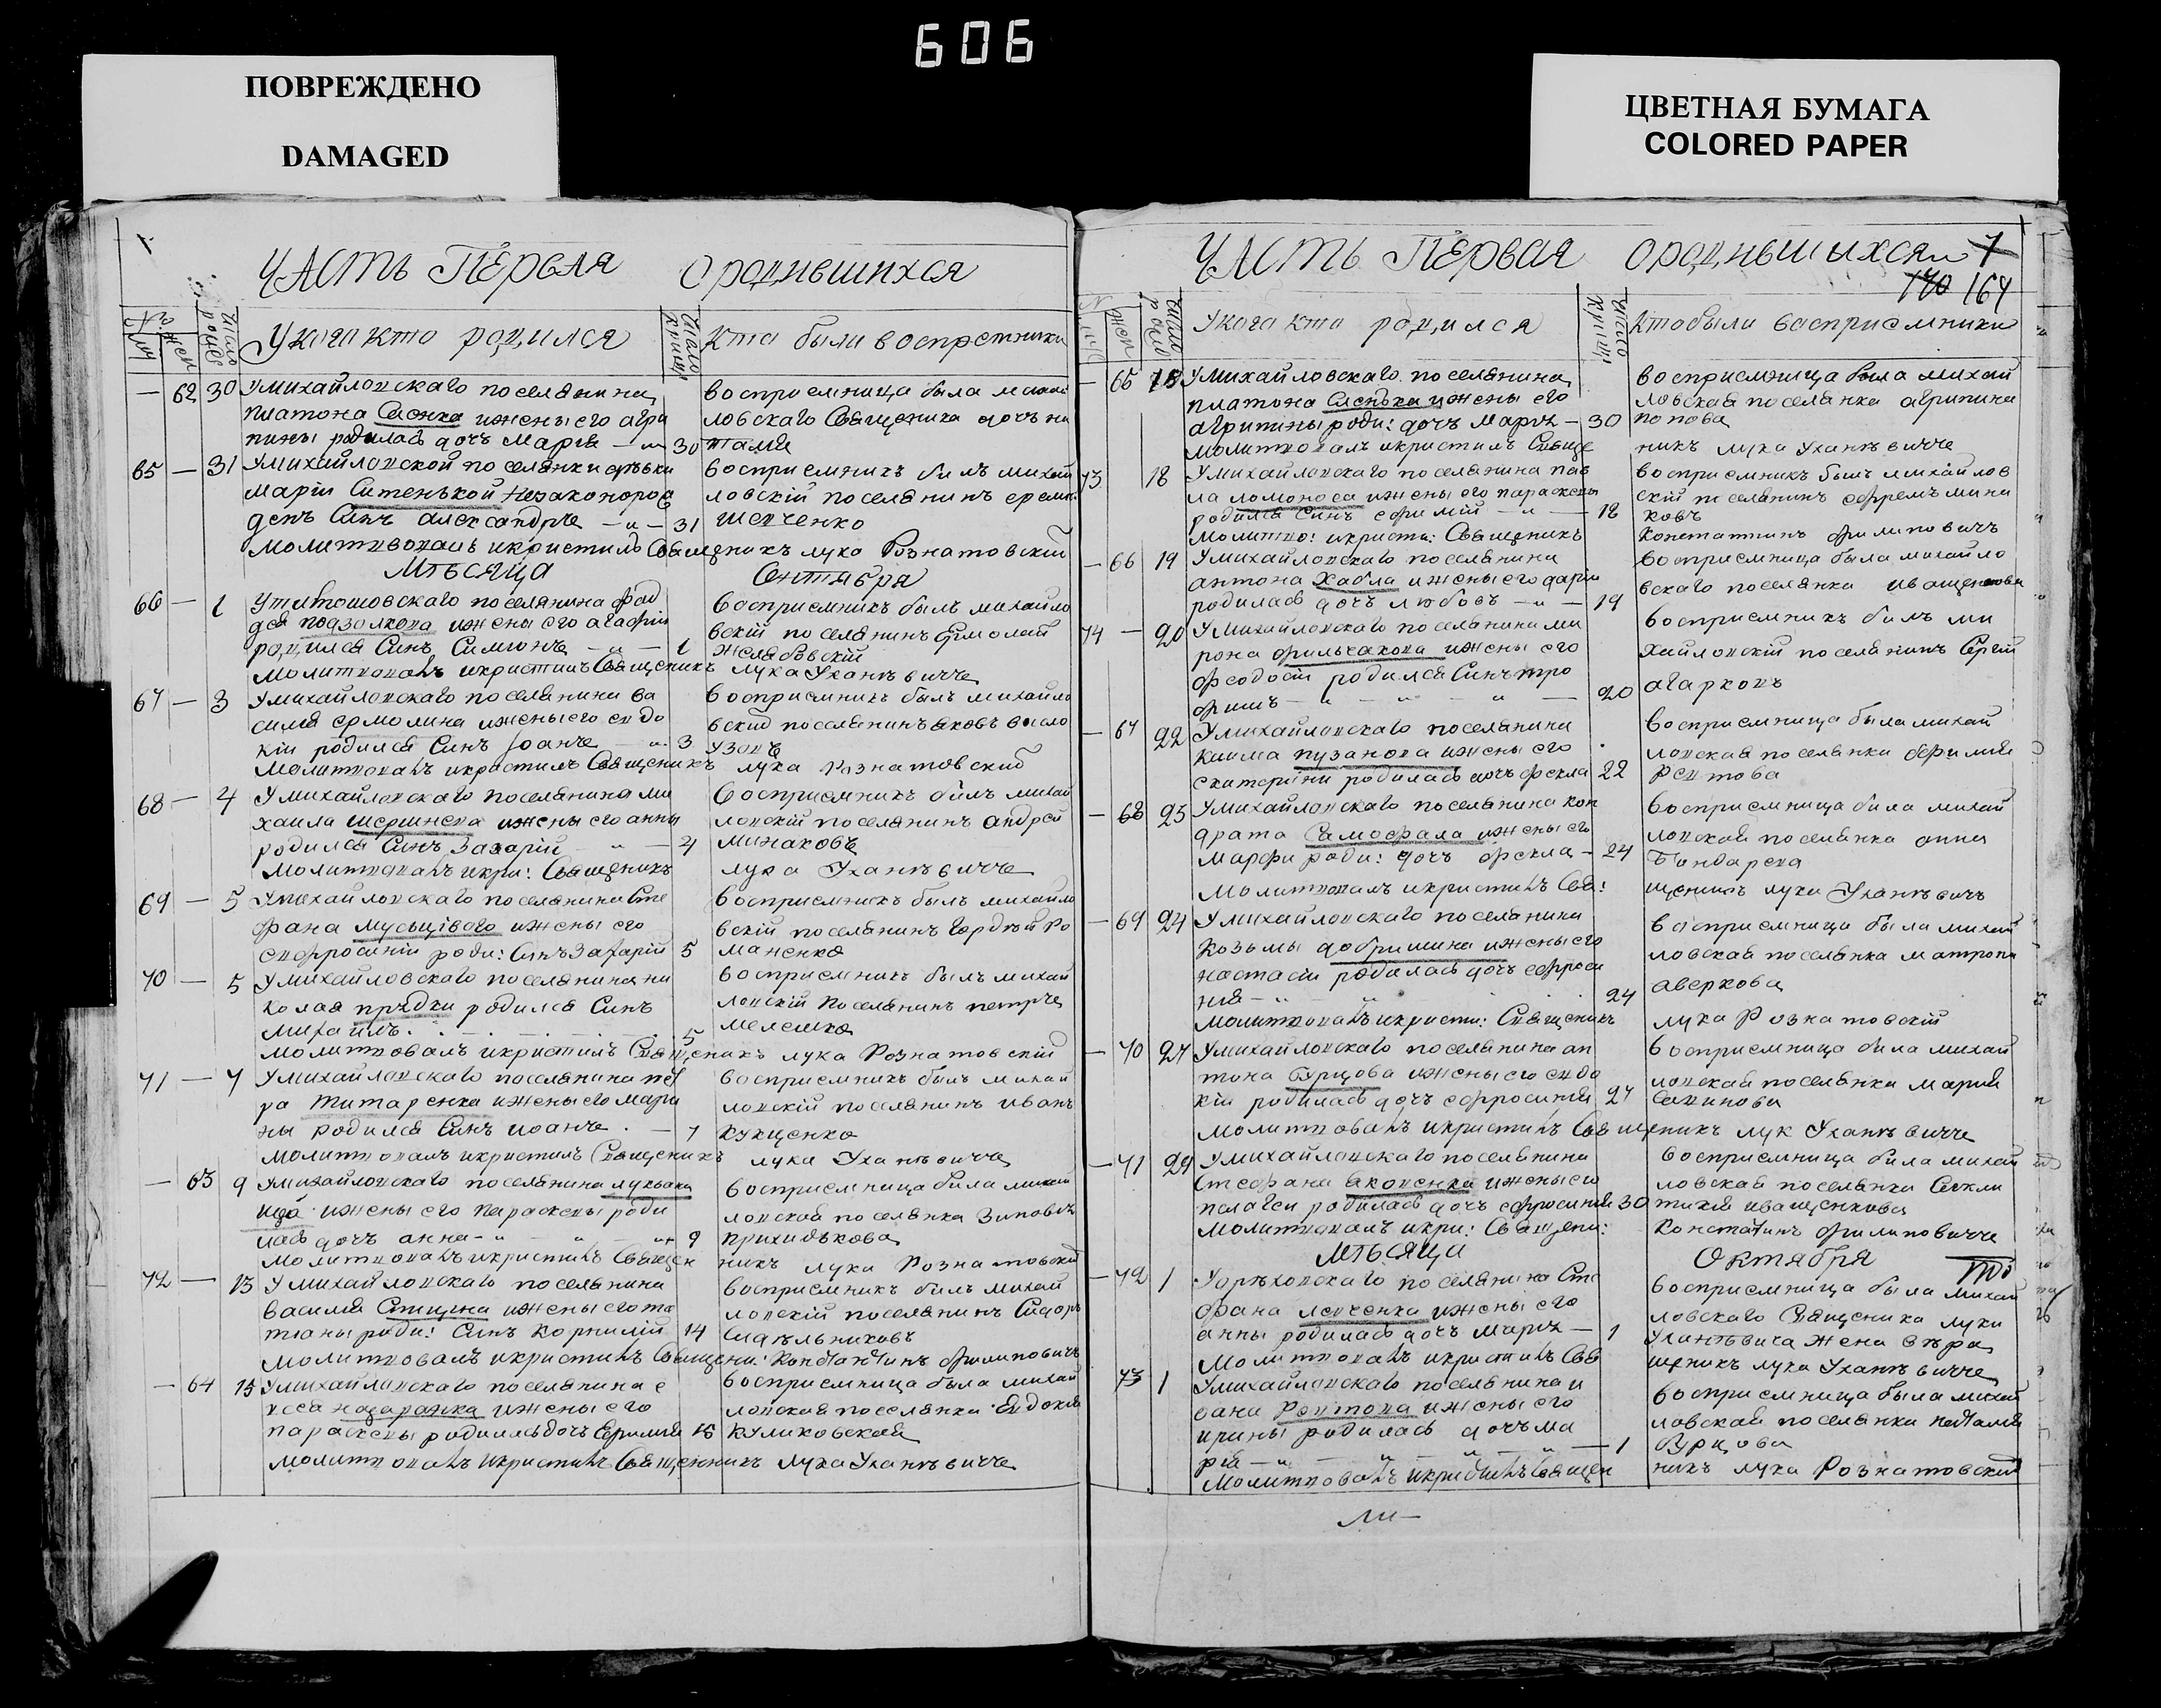 606
ПОВРЕЖДЕНО
DAMAGED
ЦВЕТНАЯ БУМАГА
COLORED PAPER
ЧАСТЬ ПЕРВАЯ о родившихся
У кого кто родился
Кто были воспреемники
62 30 У михайловскаго поселянина
платона Сленка и жены его агри
пины родилась дочь Марія 30
восприемница была михай
ловскаго Священика дочь на
талія
65 31 У михайловской поселянки девки
Маріи Ситенькой незаконорож
денъ Синъ александръ 31
восприемникъ билъ михай
ловскій поселянинъ
шевченко
молитвовалъ и кристилъ Священикъ лука Рознатовскій
Мѣсяца Сентября
66 1 поселянина фад
дея подзолкова и жены его агафіи
родился Синъ Симіонъ 1
восприемникъ былъ михайло
вскій поселянинъ Ермолай
желябовскій
молитвовалъ и кристилъ Священикъ лука Уханѣвичъ
67 3 У михайловскаго поселянина ва
силія ермолина и жены его евдо
кіи родился Синъ Іоанъ 3
восприемникъ былъ михайло
вский поселянинъ яковъ
молитвовалъ и кристилъ Священикъ лука Рознатовский
68 4 У михайловскаго поселянина ми
хаила и жены его анны
родился Синъ Захарій 4
восприемникъ билъ михай
ловскій поселянинъ андрей
минаковъ
молитвовалъ и кри: Священикъ лука Уханѣвичъ
69 5 У михайловскаго поселянина Сте
фана и жены его
ефросиніи роди: Синъ Захарій 5
восприемникъ былъ михайло
вскій поселянинъ Гордѣй Ро
маненко
70 5 У михайловскаго поселянина ни
колая прядки родился Синъ
михаилъ 5
восприемникъ былъ михай
ловскій поселянинъ петръ
мелешко
молитвовалъ и кристилъ Священикъ лука Рознатовскій
71 7 У михайловскаго поселянина пет
ра титаренка и жены его мари
ны родился Синъ иоанъ 7
восприемникъ былъ михай
ловскій поселянинъ иванъ
куценко
молитвовалъ и кристилъ Священикъ лука Уханѣвичъ
63 9 У михайловскаго поселянина
и жены его параскевы роди
лась дочь анна 9
восприемница била михай
ловская поселянка Зиновія
приходькова
молитвовалъ и кристилъ Священникъ лука Рознатовский
72 13 У михайловскаго поселянина
василия Стицина и жены его та
тяны роди: Синъ Корнилій 14
восприемникъ билъ михай
ловскій поселянинъ Сидоръ
Сидѣльниковъ
молитвовалъ и кристилъ Священи: Константинъ филиповичъ
64 15 У михайловскаго поселянина
назаранка и жены его
параскевы родилась дочь Евфимія 15
восприемница была михай
ловская поселянка Евдокія
куликовская
молитвовалъ и кристилъ Священникъ лука Уханѣвичъ
ЧАСТЬ ПЕРВАЯ о родившихся
7
170 164
У кого кто родился
Кто были восприемники
65 15 У михайловскаго поселянина
платона Сленька и жены его
агрипины роди: дочь Марія 30
восприемница была михай
ловская поселянка агрипина
попова
молитвовалъ и кристилъ Священикъ лука Уханѣвичъ
73 18 У михайловскаго поселянина пав
ла ломоноса и жены его параскевы
родился Синъ ефимій 18
восприемникъ былъ михайлов
скій поселянинъ ефремъ мина
ковъ
молитво: и кристи: Священикъ Константинъ филиповичъ
66 19 У михайловскаго поселянина
антона Хабла и жены его дарии
родилась дочь любовь 19
восприемница была михайло
вскаго поселянка иващенкова
74 20 У михайловскаго поселянина ми
рона фильчакова и жены его
феодосіи родился Синъ тро
фимъ 20
восприемникъ билъ ми
хайловскій поселянинъ Сергій
агарковъ
67 22 У михайловскаго поселянина
кыима пузанова и жены его
екатерини родилась дочь фекла 22
восприемница была михай
ловская поселянка Ефимія
Рептова
68 23 У михайловскаго поселянина кон
драта Самофала и жены его
Марфи роди: дочь фекла 24
восприемница била михай
ловская поселянка анна
Бондарева
молитвовалъ и кристилъ Свя: щеникъ лука Уханѣвичъ
69 24 У михайловскаго поселянина
козьмы добришина и жены его
настасіи родилась дочь ефроси
нія 24
восприемница была михай
ловская поселянка матрона
аверкова
молитвовалъ и кристи: Священикъ лука Рознатовскій
70 27 У михайловскаго поселянина ан
тона Бурцова и жены его евдо
кіи родилась дочь ефросинія 27
восприемница била михай
ловская поселянка марія
Савинова
молитвовалъ и кристилъ Священикъ лук Уханѣвичъ
71 29 У михайловскаго поселянина
Стефана яковенка и жены его
пелагеи родилась дочь ефросинія 30
восприемница била михай
ловская поселянка Секли
тикія иващенкова
молитвовалъ и кри: Священи: Констатинъ филиповичъ
Мѣсяца Октября
72 1 У орѣховскаго поселянина Сте
фана левченка и жены его
анны родилась дочь марія 1
восприемница была михай
ловскаго Священика луки
Уханѣвича жена
молитвовалъ и кристилъ Священикъ лука Уханѣвичъ
73 1 У михайловскаго поселянина и
оана Рептова и жены его
ирины родилась дочь ма
рія 1
восприемница была михай
ловская поселянка наталія
Бурцова
молитвовалъ и кристилъ Священикъ лука Рознатовский